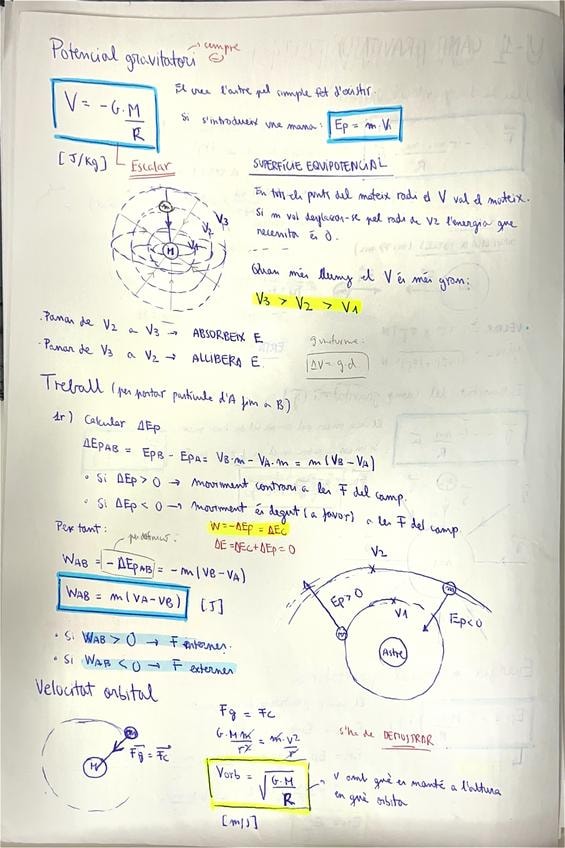 Potencial gravitatori → sempre ⊖
V = -G·M/R
El crea l'astre pel simple fet d'existir.
Si s'introdueix una massa: Ep = m·V
[J/kg] Escalar
SUPERFÍCIE EQUIPOTENCIAL
En tots els punts del mateix radi el V val el mateix.
Si m vol desplaçar-se pel radi de V2 l'energia que
necessita és 0.
m
M
V1
V2
V3
Quan més lluny el V és més gran:
V3 > V2 > V1
· Passar de V2 a V3 → ABSORBEIX E
· Passar de V3 a V2 → ALLIBERA E.
g uniforme:
ΔV = g·d
Treball (per portar partícula d'A fins a B)
1r) Calcular ΔEp
ΔEPAB = EPB - EPA = VB·m - VA·m = m(VB - VA)
• Si ΔEp > 0 → moviment contrari a les F del camp.
• Si ΔEp < 0 → moviment és degut (a favor) a les F del camp.
Per tant:
per definició:
W = -ΔEp = ΔEc
ΔE = ΔEc + ΔEp = 0
WAB = -ΔEPAB = -m(VB - VA)
WAB = m(VA - VB) [J]
V2
Ep > 0
V1
Ep < 0
m
m
Astre
• Si WAB > 0 → F internes.
• Si WAB < 0 → F externes
Velocitat orbital
m
M
Fg = Fc
Fg = Fc
G·M·m/r² = m·v²/r
s'ha de DEMOSTRAR.
Vorb = √(G·M/R)
→ v amb què es manté a l'altura
en què orbita
[m/s]